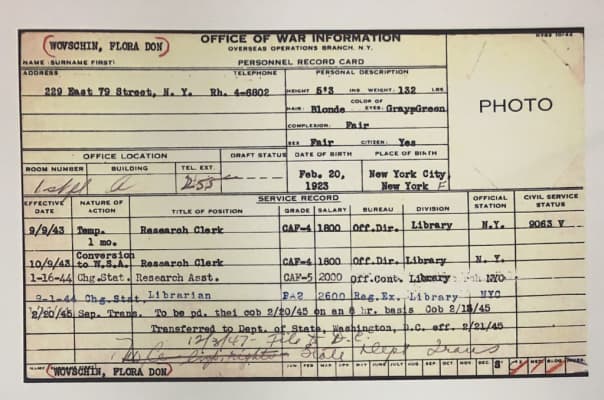 OFFICE OF WAR INFORMATION
WOVSCHIN, FLORA DON
OVERSEAS OPERATIONS BRANCH, N.Y.
NAME (SURNAME FIRST) PERSONNEL RECORD CARD
ADDRESS TELEPHONE PERSONAL DESCRIPTION
229 East 79 Street, N. Y. Rh. 4-6802 HEIGHT 5'3 INS WEIGHT: 132 LBS.
COLOR OF
HAIR: Blonde EYES: Gray-Green
PHOTO
COMPLEXION: Fair
SEX Fair CITIZEN: Yes
OFFICE LOCATION DRAFT STATUS DATE OF BIRTH PLACE OF BIRTH
ROOM NUMBER BUILDING TEL. EXT.
A 255
Feb. 20, New York City
1923 New York F
SERVICE RECORD
EFFECTIVE DATE NATURE OF ACTION TITLE OF POSITION GRADE SALARY BUREAU DIVISION OFFICIAL STATION CIVIL SERVICE STATUS
9/9/43 Temp. Research Clerk CAF-4 1800 Off.Dir. Library N.Y. 9063 V
1 mo.
Conversion
10/9/43 to W.S.A. Research Clerk CAF-4 1800 Off.Dir. Library N. Y.
1-16-44 Chg.Stat. Research Asst. CAF-5 2000 Off.Cont. Library NYC
Chg.Stat. Librarian 2600 Reg.Ex. Library NYC
2/20/45 Sep. Trans. To be pd. thei cob 2/20/45 on an 8 hr. basis Cob
Transferred to Dept. of State, Washington, D.C. eff. 2/21/45
12/3/47 - File to D.C.
State Dept Trans
WOVSCHIN, FLORA DON JAN FEB MAR APR MAY JUNE JULY AUG SEP OCT NOV DEC S